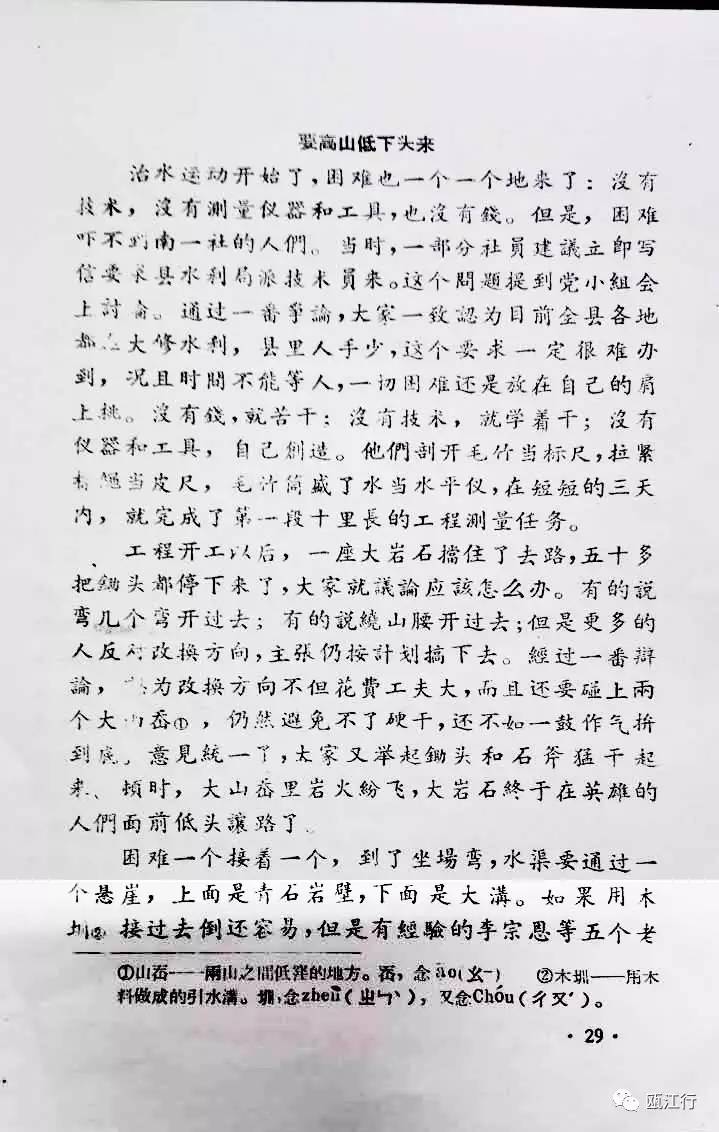 要高山低下头来
治水运动开始了，困难也一个一个地来了：沒有
技术，沒有測量仪器和工具，也沒有錢。但是，困难
吓不到南一社的人們。当时，一部分社員建議立卽写
信要求县水利局派技术員来。这个問題提到党小組会
上討論。通过一番爭論，大家一致認为目前全县各地
都在大修水利，县里人手少，这个要求一定很难办
到，况且时間不能等人，一切困难还是放在自己的肩
上挑。沒有錢，就苦干；沒有技术，就学着干；沒有
仪器和工具，自己創造。他們剖开毛竹当标尺，拉紧
繩当皮尺，毛竹筒盛了水当水平仪，在短短的三天
內，就完成了第一段十里長的工程測量任务。
工程开工以后，一座大岩石擋住了去路，五十多
把鋤头都停下来了，大家就議論应該怎么办。有的說
弯几个弯开过去；有的說繞山腰开过去；但是更多的
人反对改換方向，主张仍按計划搞下去。經过一番辯
論，为改換方向不但花費工夫大，而且还要碰上兩
个大山岙①，仍然避免不了硬干，还不如一鼓作气拚
到底。意見統一了，大家又举起鋤头和石斧猛干起
来。頓时，大山岙里岩火紛飞，大岩石終于在英雄的
人們面前低头讓路了。
困难一个接着一个，到了坐場弯，水渠要通过一
个悬崖，上面是青石岩壁，下面是大溝。如果用木
圳②接过去倒还容易，但是有經驗的李宗恩等五个老
①山岙——兩山之間低窪的地方。岙，念āo（ㄠ－） ②木圳——用木
料做成的引水溝。圳，念zhen（ㄓㄣˋ），又念Chóu（ㄔㄡˊ）。
·29·
瓯江行